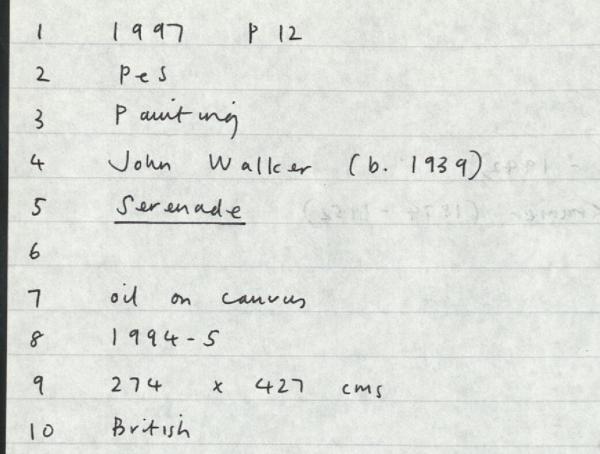 1 1997 P 12
2 Pes
3 Painting
4 John Walker (b. 1939)
5 Serenade
6
7 oil on canvas
8 1994-5
9 274 x 427 cms
10 British